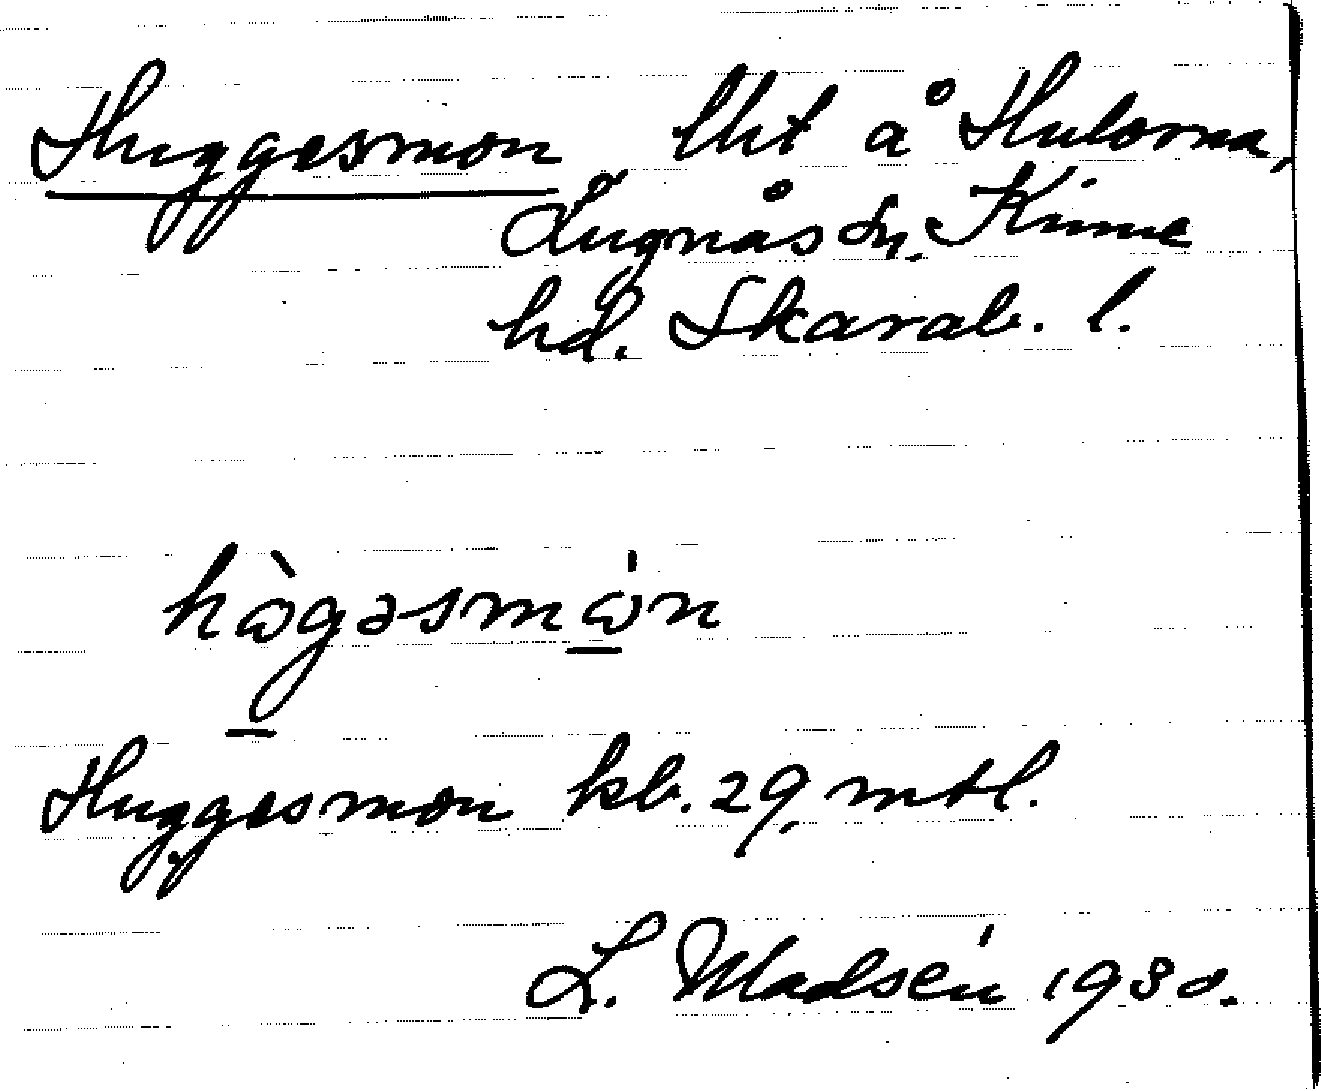 Huggesmon lht å Hulorna,
Lugnås sn, Kinne
hd. Skarab. l.
hògəsmón
Huggesmon kb. 29, mtl.
L. Madsén 1930.